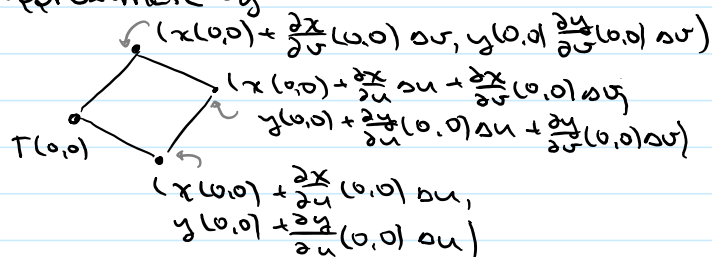 approximate by
(x(0,0) + ∂x/∂v (0,0) Δv, y(0,0) ∂y/∂v (0,0) Δv)
(x(0,0) + ∂x/∂u Δu + ∂x/∂v (0,0) Δv,
y(0,0) + ∂y/∂u (0,0) Δu + ∂y/∂v (0,0) Δv)
T(0,0)
(x(0,0) + ∂x/∂u (0,0) Δu,
y(0,0) + ∂y/∂u (0,0) Δu)